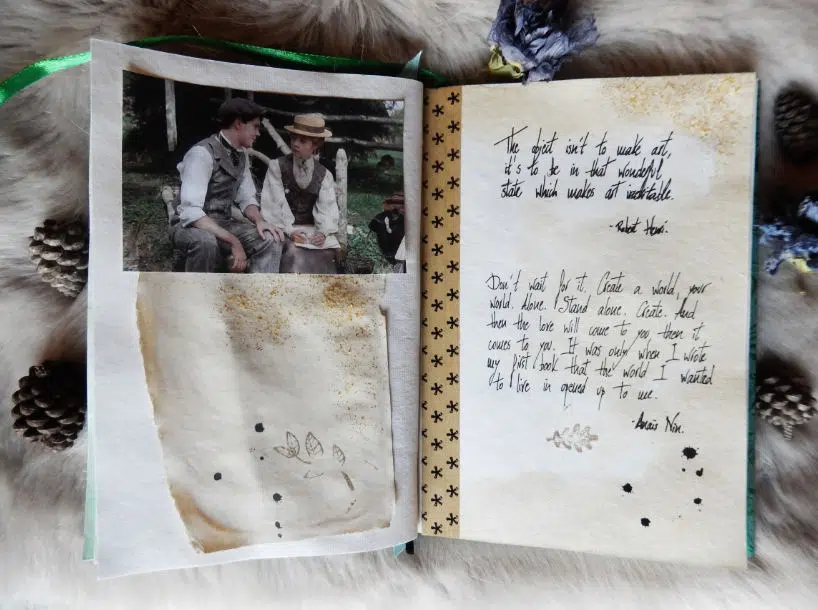 The object isn't to make art,
it's to be in that wonderful
state which makes art inevitable.
- Robert Henri.
Don't wait for it. Create a world, your
world. Alone. Stand alone. Create. And
then the love will come to you, then it
comes to you. It was only when I wrote
my first book that the world I wanted
to live in opened up to me.
- Anaïs Nin.